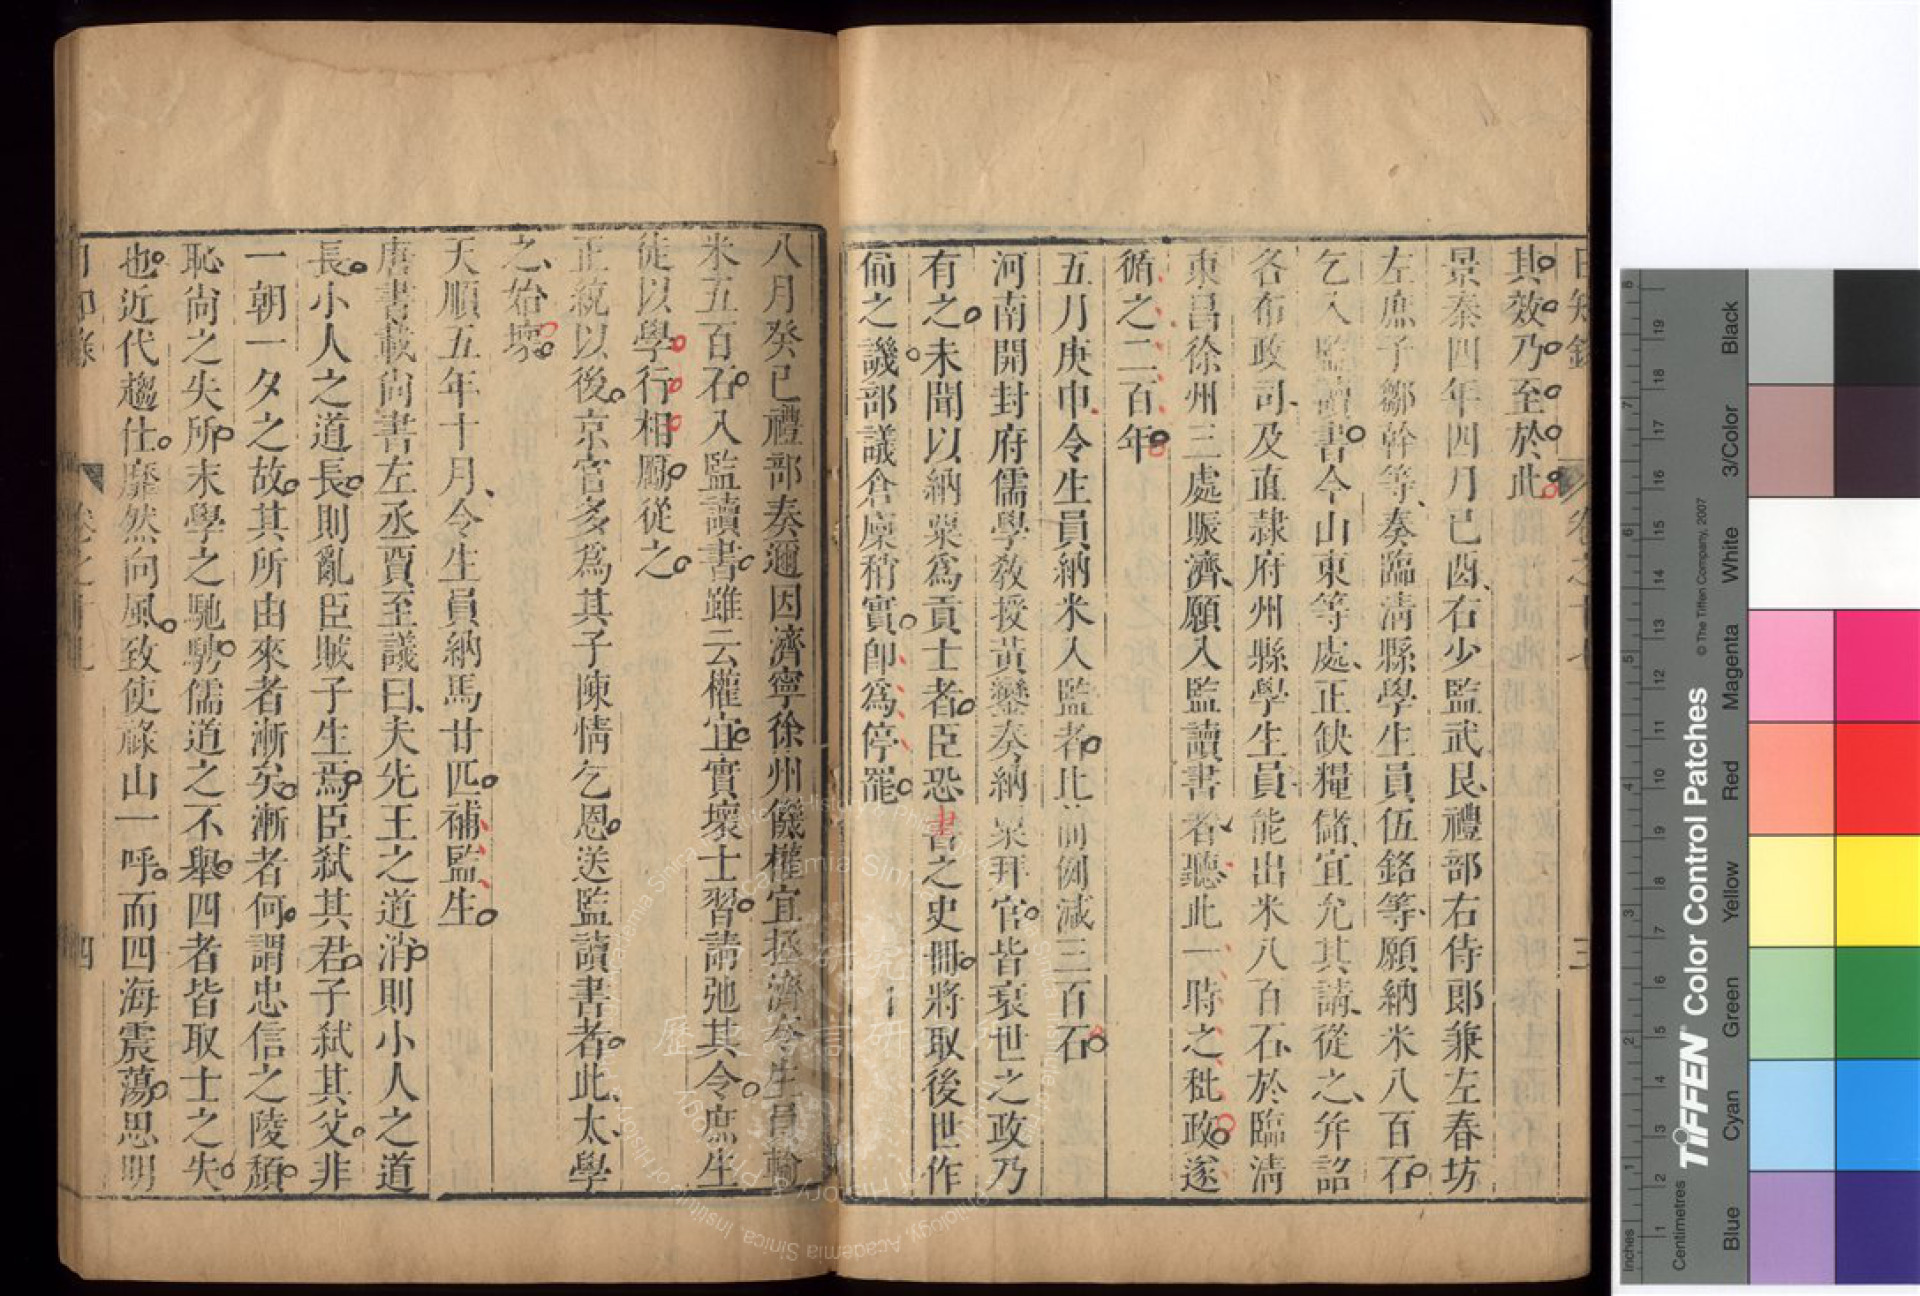 日知錄 卷之十七 三
其效乃至於此
景泰四年四月已酉右少監武艮禮部右侍郎兼左春坊
左庶子鄒幹等奏臨清縣學生員伍銘等願納米八百石
乞入監讀書今山東等處正缺糧儲宜允其請從之并詔
各布政司及直隷府州縣學生員能出米八百石於臨清
東昌徐州三處賑濟願入監讀書者聽此一時之秕政遂
循之二百年
五月庚申令生員納米入監者比前例減三百石
河南開封府儒學敎授黃鑾奏納粟拜官皆衰世之政乃
有之未聞以納粟爲貢士者臣恐書之史冊將取後世作
俑之譏部議倉廩稍實卽爲停罷
八月癸已禮部奏邇因濟寧徐州饑權宜拯濟令生員輸
米五百石入監讀書雖云權宜實壞士習請弛其令庶生
徒以學行相勵從之
正統以後京官多爲其子陳情乞恩送監讀書者此太學
之始壞
天順五年十月令生員納馬廿匹補監生
唐書載尚書左丞賈至議曰夫先王之道消則小人之道
長小人之道長則亂臣賊子生焉臣弑其君子弑其父非
一朝一夕之故其所由來者漸矣漸者何謂忠信之陵頹
恥尚之失所末學之馳騁儒道之不舉四者皆取士之失
也近代趨仕靡然向風致使祿山一呼而四海震蕩思明
日知錄 卷之 四
Centimetres
Inches
TIFFEN Color Control Patches
© The Tiffen Company, 2007
Blue
Cyan
Green
Yellow
Red
Magenta
White
3/Color
Black